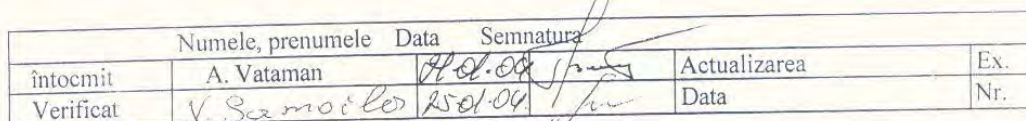 Numele, prenumele Data Semnatura
întocmit A. Vataman 01.04 Actualizarea Ex.
Verificat V. Samoilov 25.01.04. Data Nr.